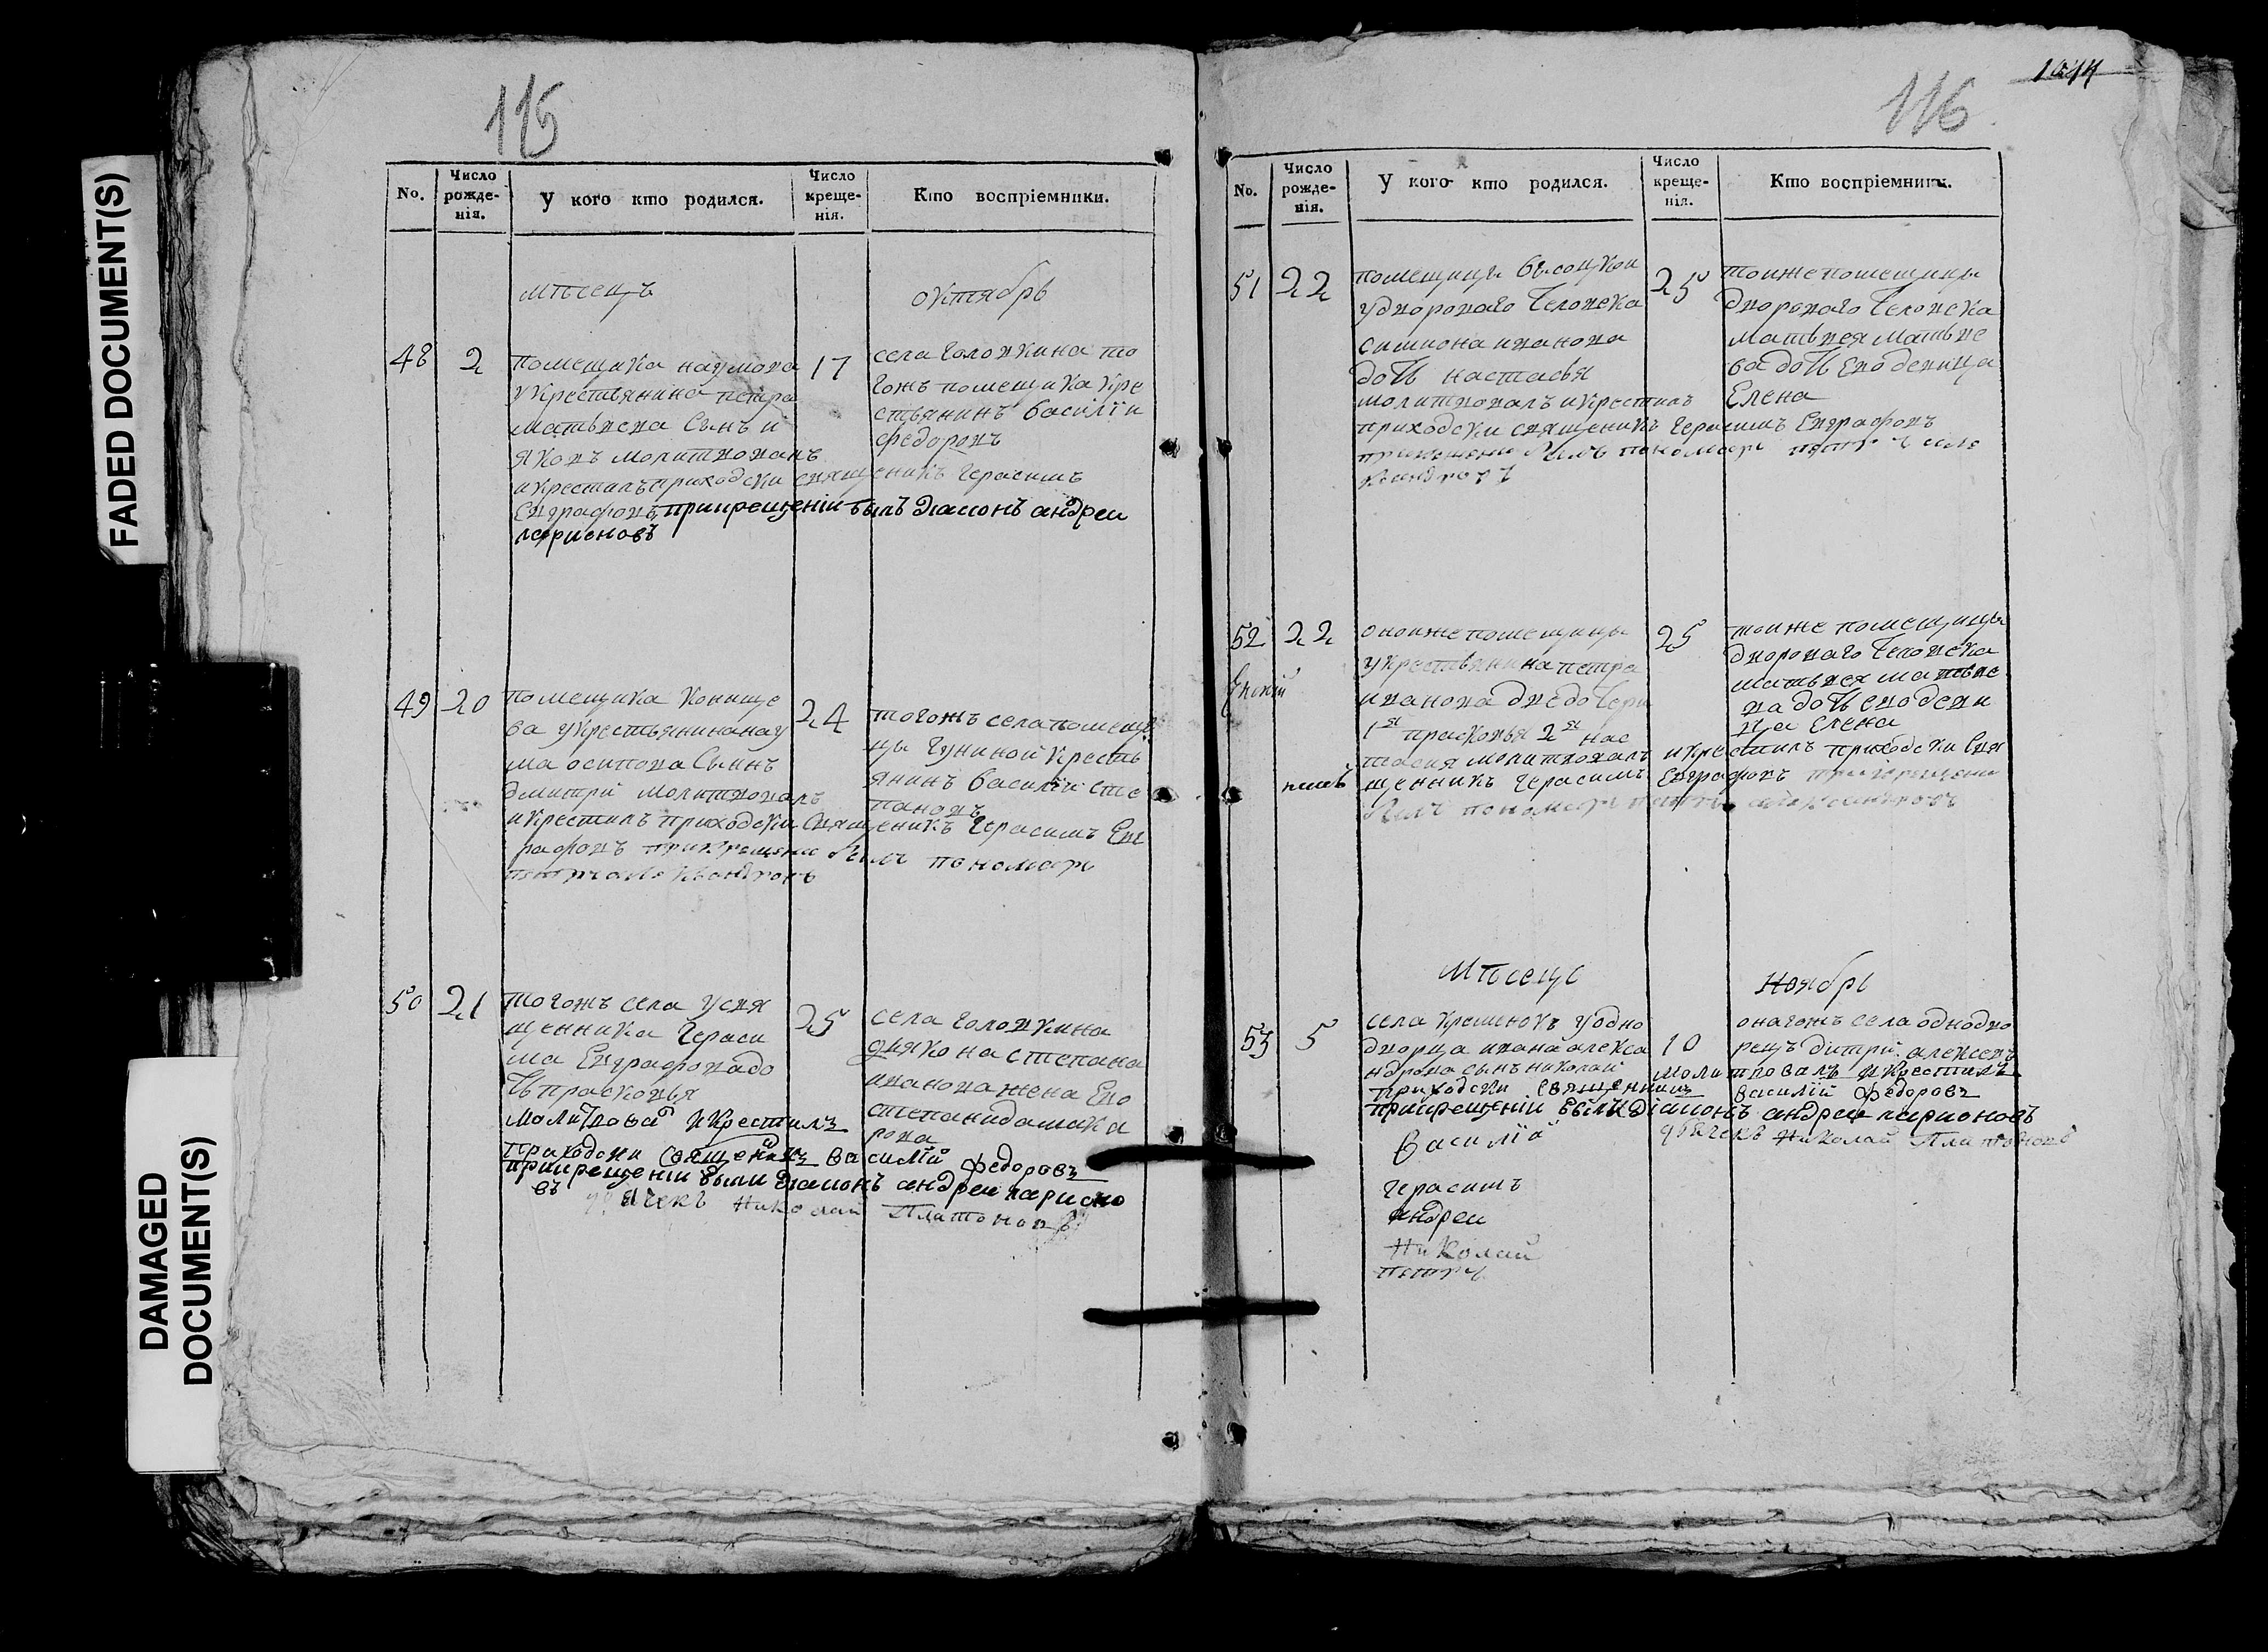 FADED DOCUMENT(S)
DAMAGED
DOCUMENT(S)
115
No.
Число
рожде-
нія.
У кого кто родился.
Число
креще-
нія.
Кто воспріемники.
мѣсецъ
октябрь
48
2
помещика наумова
укрестьянина петра
матвеева Сынъ и
яковъ молитвовалъ
икрестилъ приходски священикъ герасимъ
Евграфовъ прикрещеніи былъ диаконъ андреи
ларионовъ
17
села головкина то
гожъ помещика кре
стьянинъ василїи
федоровъ
49
20
помещика
ва укрестьянина нау
ма осипова Сынъ
дмитрїй молитвовалъ
икрестилъ приходски священикъ герасимъ Евг
рафовъ прикрещени былъ пономарь
24
тогожъ села помещи
цы гуниной кресть
янинъ василїй сте
пановъ
50
21
тогожъ села усвя
щенника гераси
ма Евграфова до
чь прасковья
молитвовал икрестилъ
приходски священикъ василїй федоровъ
прикрещеніи были диаконъ андреи ларионо
въ
дьячекъ Николай Платоновъ
25
села головкина
дияко на степана
иванова жена Ево
степанида мака
рова
1044
116
No.
Число
рожде-
нія.
У кого кто родился.
Число
креще-
нія.
Кто воспріемники.
51
22
помещицы
удворового человека
симиона иванова
дочь настасья
молитвовалъ икрестилъ
приходски священикъ герасимъ Евграфовъ
былъ пономарь
25
тоиже помещицы
дворового человека
матвея матвее
ва дочь Ево девица
Елена
52
22
оноиже помещицы
укрестьянина петра
иванова две дочери
1я прасковья 2я нас
тасия молитвовалъ икрестилъ приходски свя
щенникъ герасимъ Евграфовъ прикрещени
былъ пономарь
25
тоиже помещицы
дворового человека
матвея матвее
ва дочь ево деви
ца елена
Мѣсецъ
Ноябрь
53
5
села кременокъ уодно
дворца ивана алекса
ндрова сынъ николай молитвовалъ икрестилъ
приходски священникъ василїй федоровъ
прикрещеніи былъ диаконъ андреи ларионовъ
дьячекъ Николай Платоновъ
10
оногожъ села однодво
рецъ дмтрїй алексеевъ
Василїй
герасимъ
андреи
Николай
петръ